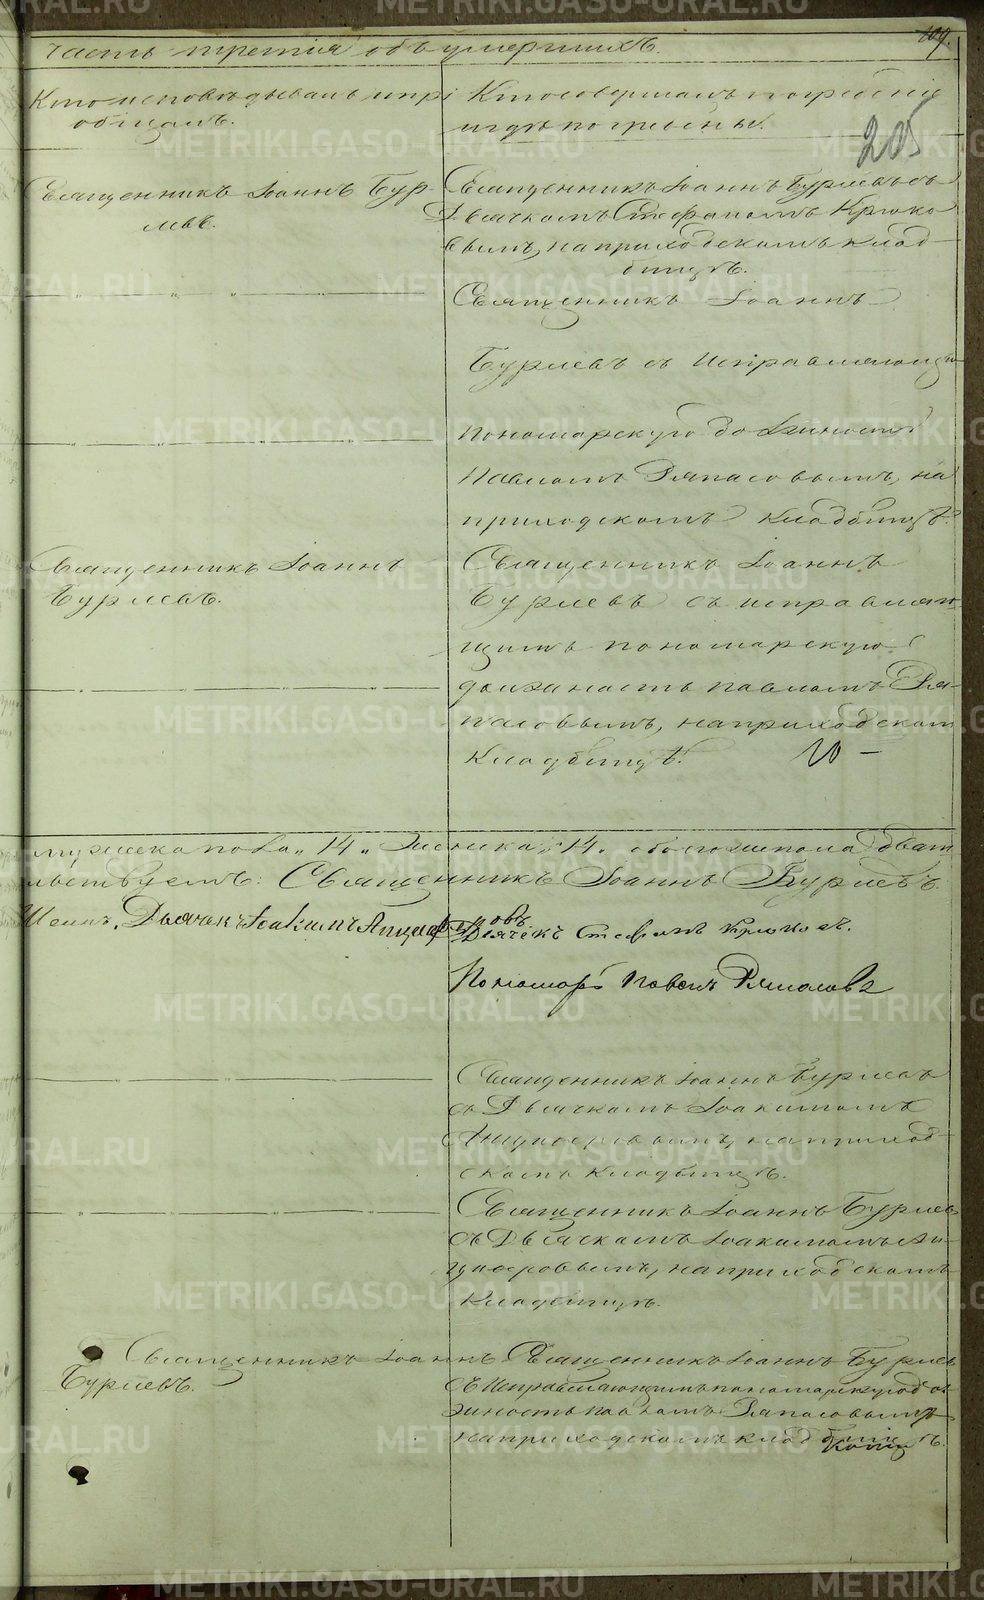 часть третія объ умершихъ.
109.
Кто исповѣдывалъ и прі
общалъ.
Кто совершалъ погребеніе
и гдѣ погребены.
205
Священникъ Іоаннъ Бур-
левъ.
Священникъ Іоаннъ Бурлевъ съ
Дьячкомъ Стефаномъ Крюко
вымъ, на приходскомъ клад-
бищѣ.
Священникъ Іоаннъ
Бурлевъ съ исправляющи
пономарскую должность
Павломъ Ряпасовымъ, на
приходскомъ кладбищѣ.
Священникъ Іоаннъ
Бурлевъ.
Священникъ Іоаннъ
Бурлевъ съ исправляю-
щимъ пономарскую
должность Павломъ Ря-
пасовымъ, на приходском
кладбищѣ.
мужеска пола „14„ женска „14„ обоего пола двад
льствуемъ: Священникъ Іоаннъ Бурлевъ
Дьячекъ Іоакимъ Анциферовъ
Дьячекъ Стефанъ Крюковъ.
Пономарь Павелъ Ряпасовъ
Священникъ Іоаннъ Бурлевъ
съ Дьячкомъ Іоакимомъ
Анциферовымъ, на приход-
скомъ кладбищѣ.
Священникъ Іоаннъ Бурлев
съ Дьячкомъ Іоакимомъ Ан-
циферовымъ, на приходскомъ
кладбищѣ.
Священникъ Іоаннъ
Бурлевъ.
Священникъ Іоаннъ Бурлев
съ исправляющимъ пономарскую дол
жность Павломъ Ряпасовымъ
на приходскомъ кладбищѣ.
METRIKI.GASO-URAL.RU